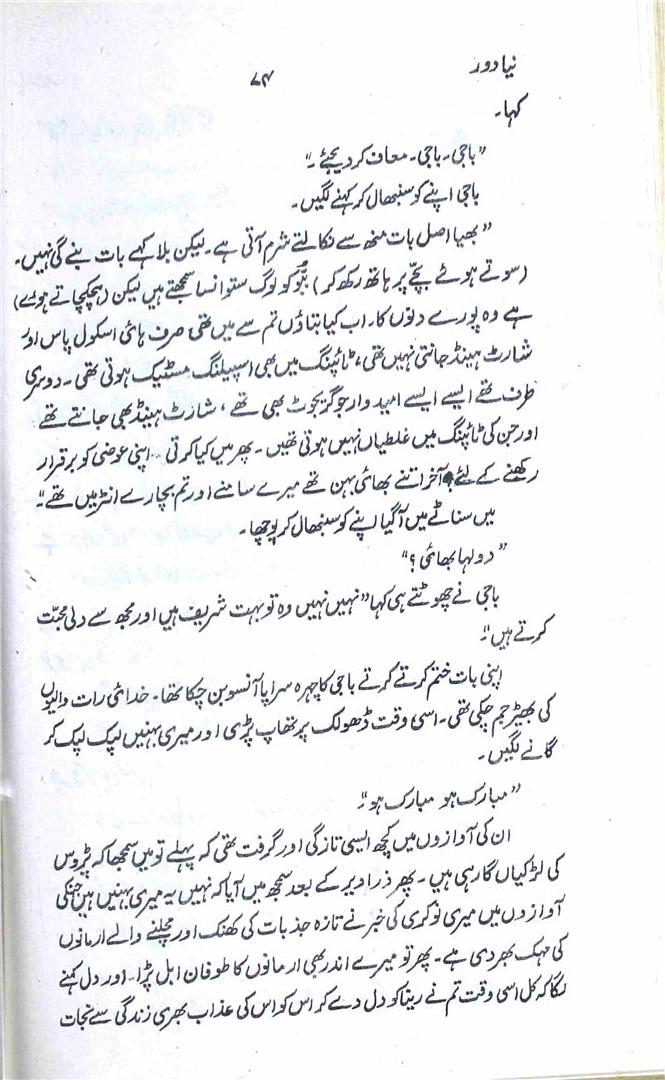 نیا دور
۷۴
کہا۔
”باجی۔ باجی۔ معاف کر دیجئے۔“
باجی اپنے کو سنبھال کر کہنے لگیں۔
”بھیا اصل بات منھ سے نکالتے شرم آتی ہے۔ لیکن بلا کہے بات بنے گی نہیں۔
(سوتے ہوئے بچّے پر ہاتھ رکھ کر) ببّو کو لوگ ستوانسا سمجھتے ہیں لیکن (ہچکچاتے ہوئے)
ہے وہ پورے دنوں کا۔ اب کیا بتاؤں تم سے میں تھی صرف ہائی اسکول پاس اور
شارٹ ہینڈ جانتی نہیں تھی، ٹائپنگ میں بھی اسپیلنگ مسٹیک ہوتی تھی۔ دوسری
طرف تھے ایسے ایسے امیدوار جو گریجوٹ بھی تھے، شارٹ ہینڈ بھی جانتے تھے
اور جن کی ٹائپنگ میں غلطیاں نہیں ہوتی تھیں۔ پھر میں کیا کرتی اپنی عوضی کو برقرار
رکھنے کے لئے آخر اتنے بھائی بہن تھے میرے سامنے اور تم بچارے انٹر میں تھے۔“
میں سناٹے میں آگیا اپنے کو سنبھال کر پوچھا۔
”دولہا بھائی؟“
باجی نے چھوٹتے ہی کہا ”نہیں نہیں وہ تو بہت شریف ہیں اور مجھ سے دلی محبّت
کرتے ہیں“۔
اپنی بات ختم کرتے کرتے باجی کا چہرہ سراپا آنسو بن چکا تھا۔ خدائی رات والیوں
کی بھیڑ جم چکی تھی۔ اسی وقت ڈھولک پر تھاپ پڑی اور میری بہنیں لپک لپک کر
گانے لگیں۔
”مبارک ہو مبارک ہو“۔
ان کی آوازوں میں کچھ ایسی تازگی اور گرفت تھی کہ پہلے تو میں سمجھا کہ پڑوس
کی لڑکیاں گا رہی ہیں۔ پھر ذرا دیر کے بعد سمجھ میں آیا کہ نہیں یہ میری بہنیں ہیں جنکی
آوازوں میں میری نوکری کی خبر نے تازہ جذبات کی کھنک اور مچلنے والے ارمانوں
کی مہک بھر دی ہے۔ پھر تو میرے اندر بھی ارمانوں کا طوفان ابل پڑا۔ اور دل کہنے
لگا کہ کل اسی وقت تم نے ریتا کو دل دے کر اس کو اس کی عذاب بھری زندگی سے نجات